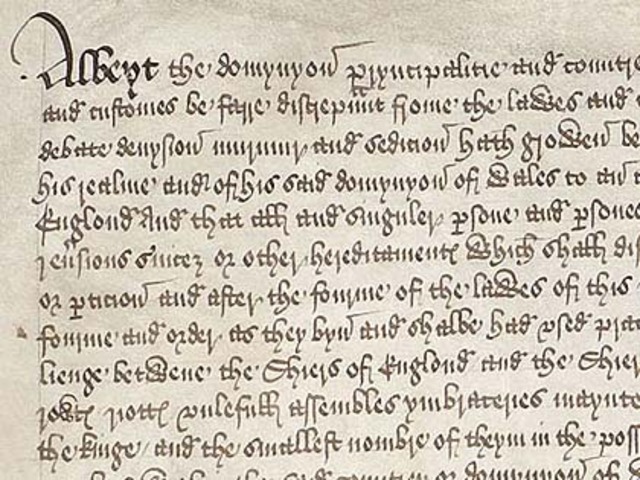 Albeyt the domynyon pryncipalitie and countre
and customes be farre discrepant frome the lawes and
debate devysion murmur and sedicion hath growen be
his realme and of his said domynyon of Wales to an
Englond And that all and singuler psone and psones
or other hereditament which shall
or pticion and after the fourme of the lawes of this
fourme and order as they byn and shalbe had vsed
lienge betwene the Shiers of Englond and the Shier
rowt riott vnlefull assembles ymbraceries maynte
the kinge and the smallest nombre of theym in the poss
said or domynyon of